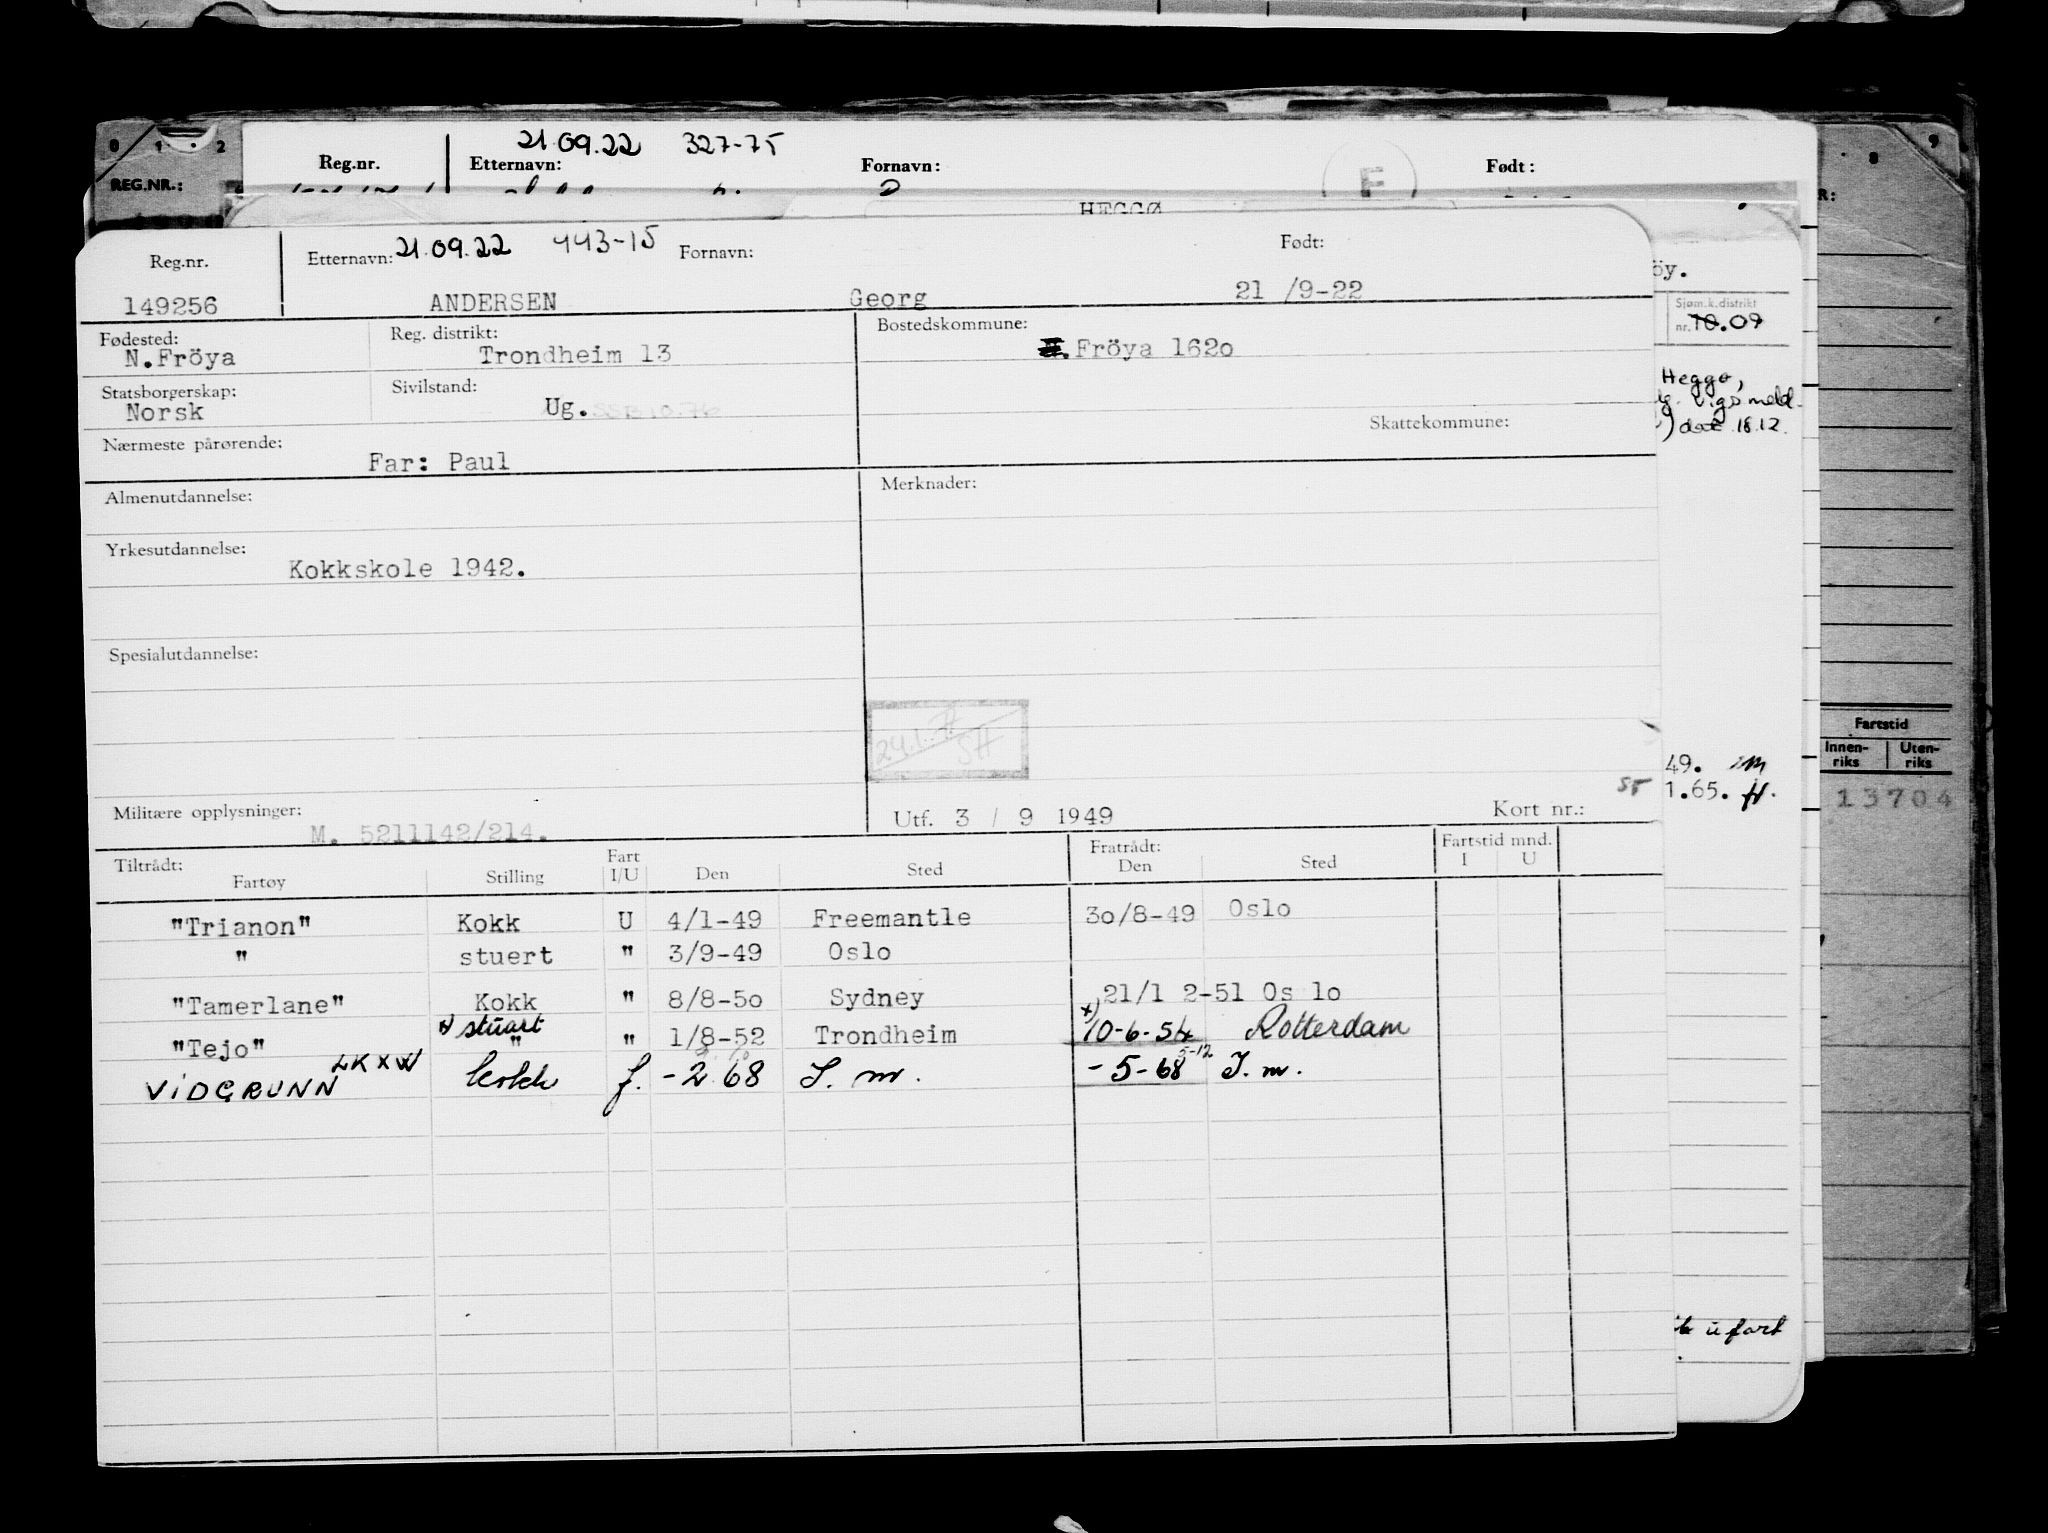 0 1 2
REG.NR.:
21.09.22 327-75
Reg.nr. Etternavn: Fornavn: Født:
F
HEGGØ
9
8
21.09.22 443-15
Reg.nr. Etternavn: Fornavn: Født:
149256 ANDERSEN Georg 21 /9-22
Fødested: Reg. distrikt: Bostedskommune:
N.Fröya Trondheim 13 Fröya 162o
Statsborgerskap: Sivilstand:
Norsk Ug. SSB 10.76
Skattekommune:
Nærmeste pårørende:
Far: Paul
Almenutdannelse: Merknader:
Yrkesutdannelse:
Kokkskole 1942.
Spesialutdannelse:
24.1. SH
Militære opplysninger: Utf. 3 / 9 1949 Kort nr.:
M. 5211142/214.
Tiltrådt: Fart Fratrådt: Fartstid mnd.
Fartøy Stilling I/U Den Sted Den Sted I U
"Trianon" Kokk U 4/1-49 Freemantle 3o/8-49 Oslo
" stuert " 3/9-49 Oslo
"Tamerlane" Kokk " 8/8-5o Sydney 21/1 2-51 Os lo
x) stuart x)
"Tejo" " " 1/8-52 Trondheim 10-6-54 Rotterdam
5-12
VIDGRUNN LKXW kokk f. -2 68 I. m. -5-68 I. m.
öy.
Sjøm.k.distrikt
nr. 10.09
Heggø,
vigs meld.
) dat 18.12.
49.
ST 1.65. H.
u fart
Fartstid
Innen-riks Uten-riks
13704